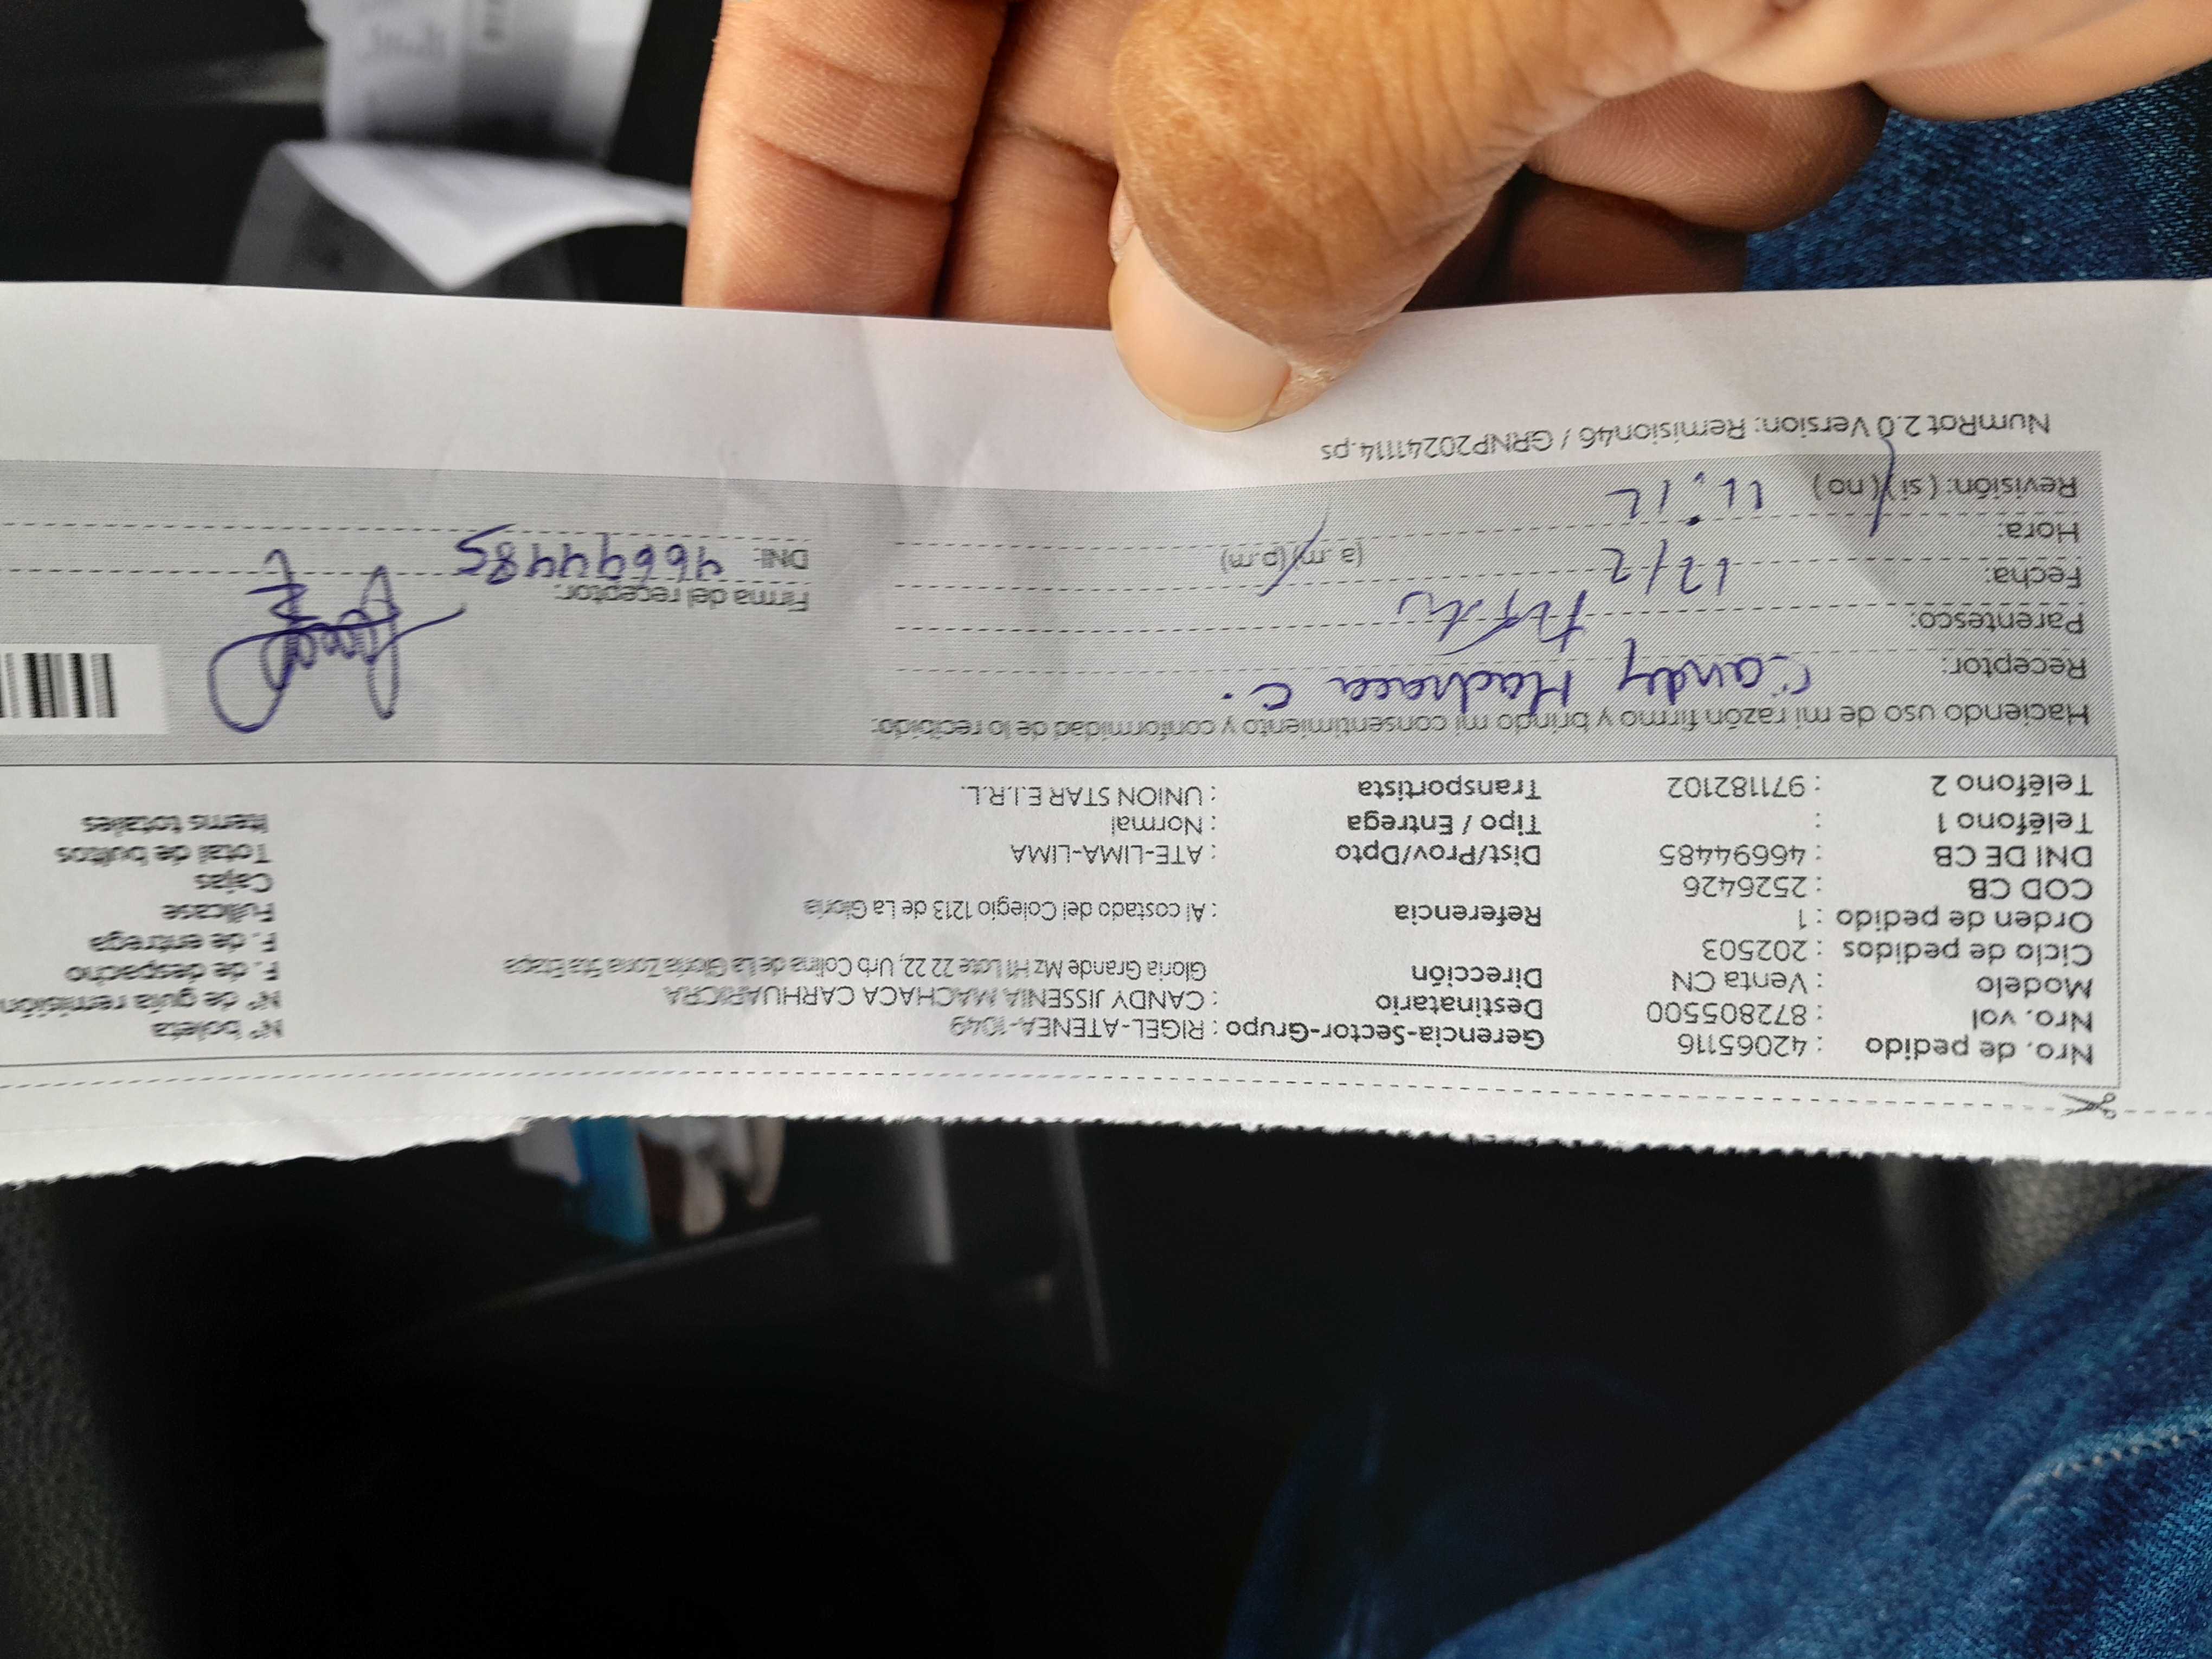 Nro. de pedido : 42065116 Gerencia-Sector-Grupo : RIGEL-ATENEA-1049 N° boleta
Nro. vol : 872805500 Destinatario : CANDY JISSENIA MACHACA CARHUARICRA N° de guía remisión
Modelo : Venta CN Dirección Gloria Grande Mz H1 Lote 22 22, Urb Colina de La Gloria Zona 5ta Etapa F. de despacho
Ciclo de pedidos : 202503 F. de entrega
Orden de pedido : 1 Referencia : Al costado del Colegio 1213 de La Gloria Fullcase
COD CB : 2526426 Cajas
DNI DE CB : 46694485 Dist/Prov/Dpto : ATE-LIMA-LIMA Total de bultos
Teléfono 1 : Tipo / Entrega : Normal Items totales
Teléfono 2 : 971182102 Transportista : UNION STAR E.I.R.L.
Haciendo uso de mi razón firmo y brindo mi consentimiento y conformidad de lo recibido:
Receptor: Candy Machaca C.
Parentesco: Firma del receptor:
Fecha: 12/2 DNI: 46694485
Hora: 11:12 (a.m)(p.m)
Revisión: (si)(no)
NumRot 2.0 Version: Remision46 / GRNP20241114.ps